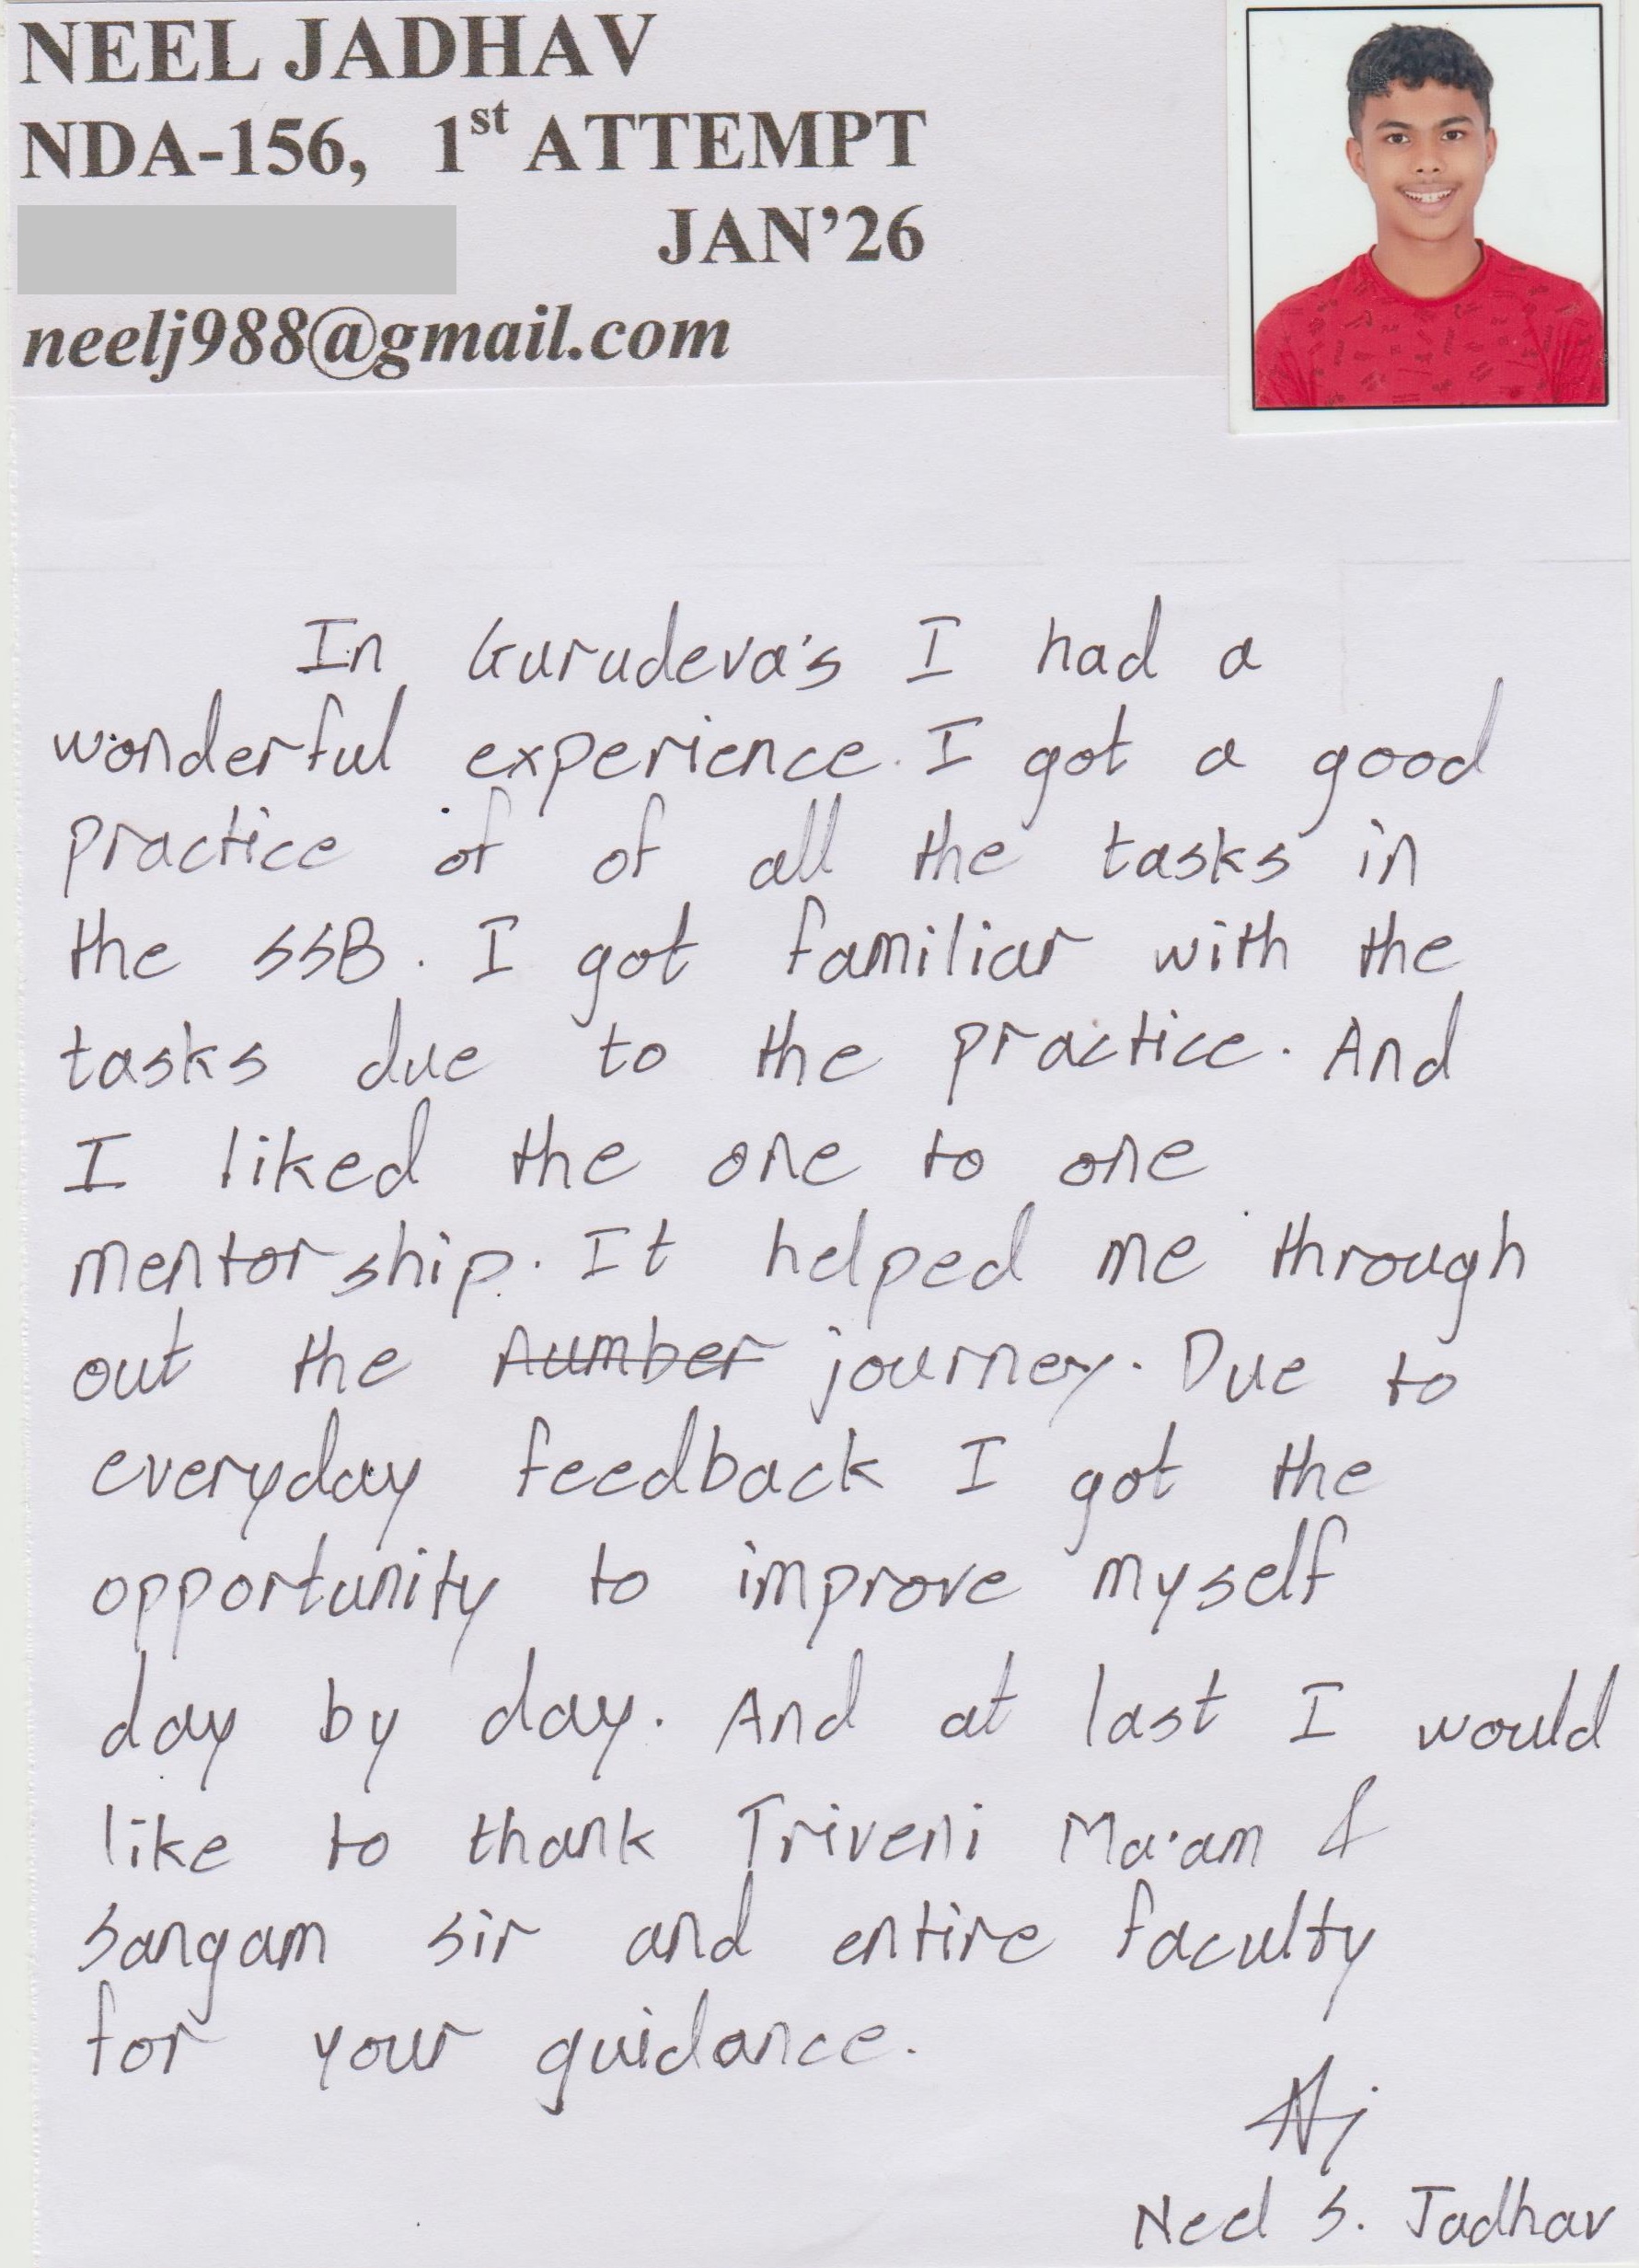 NEEL JADHAV
NDA-156, 1st ATTEMPT
JAN'26
neelj988@gmail.com
In Gurudeva's I had a
wonderful experience. I got a good
practice of of all the tasks in
the SSB. I got familiar with the
tasks due to the practice. And
I liked the one to one
mentorship. It helped me through
out the number journey. Due to
everyday feedback I got the
opportunity to improve myself
day by day. And at last I would
like to thank Triveni Ma'am &
Sangam sir and entire faculty
for your guidance.
Nj
Neel S. Jadhav